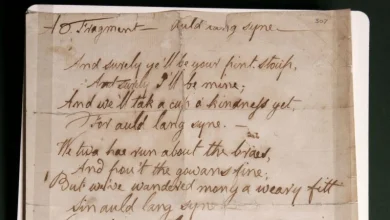 O. Fragment — Auld lang syne —
307
And surely ye'll be your pint-stoup,
And surely I'll be mine;
And we'll tak a cup o kindness yet
For auld lang syne. —
We twa hae run about the braes,
And pou't the gowans fine;
But we've wandered mony a weary fitt
Sin auld lang syne